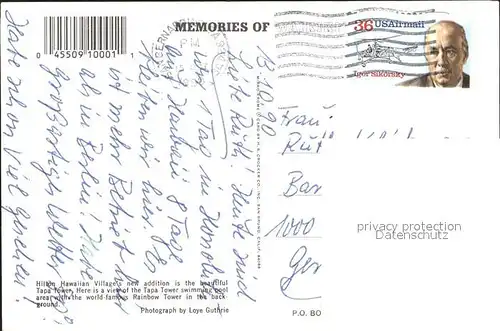 0 45509 10001 1
MEMORIES OF
36 USAirmail
Igor Sikorsky
13.10.90
Liebe Ruth! Heute sind
wir 1 Tag in Honolulu
auf Hawaii 8 Tage
bleiben wir hier. Es
ist mehr Betrieb hier
als in Berlin! Habe
Großartiges Wetter
Habe schon viel gesehen!
Frau
Rut
Bar
1000
Ger
privacy protection
Datenschutz
Hilton Hawaiian Village's new addition is the beautiful
Tapa Tower. Here is a view of the Tapa Tower swimming pool
area with the world-famous Rainbow Tower in the back-
ground.
Photograph by Loye Guthrie
P.O. BO